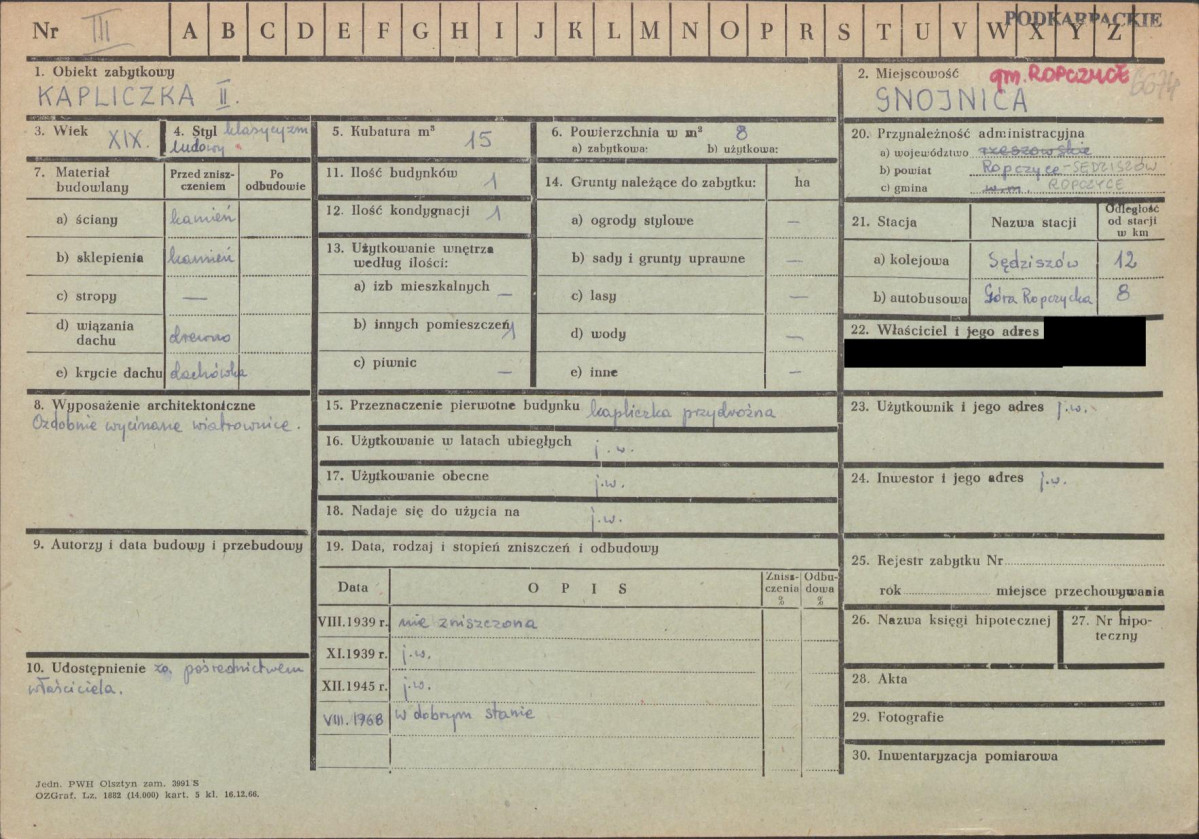 Nr III A B C D E F G H I J K L M N O P R S T U V W X Y Z
PODKARPACKIE
1. Obiekt zabytkowy
KAPLICZKA II.
2. Miejscowość gm. ROPCZYCE
GNOJNICA
3. Wiek XIX.
4. Styl klasycyzm
ludowy
5. Kubatura m³ 15
6. Powierzchnia w m² 8
a) zabytkowa: b) użytkowa:
7. Materiał budowlany
Przed zniszczeniem
Po odbudowie
a) ściany kamień
b) sklepienia kamień
c) stropy —
d) wiązania dachu drewno
e) krycie dachu dachówka
8. Wyposażenie architektoniczne
Ozdobnie wycinane wiatrownice.
9. Autorzy i data budowy i przebudowy
10. Udostępnienie za pośrednictwem
właściciela.
11. Ilość budynków 1
12. Ilość kondygnacji 1
13. Użytkowanie wnętrza
według ilości:
a) izb mieszkalnych —
b) innych pomieszczeń 1
c) piwnic —
14. Grunty należące do zabytku: ha
a) ogrody stylowe —
b) sady i grunty uprawne —
c) lasy —
d) wody —
e) inne —
15. Przeznaczenie pierwotne budynku kapliczka przydrożna
16. Użytkowanie w latach ubiegłych j.w.
17. Użytkowanie obecne j.w.
18. Nadaje się do użycia na j.w.
19. Data, rodzaj i stopień zniszczeń i odbudowy
Data O P I S Zniszczenia % Odbudowa %
VIII.1939 r. nie zniszczona
XI.1939 r. j.w.
XII.1945 r. j.w.
VIII.1968 w dobrym stanie
20. Przynależność administracyjna
a) województwo rzeszowskie
b) powiat Ropczyce-SĘDZISZÓW
c) gmina w.m. ROPCZYCE
21. Stacja Nazwa stacji Odległość od stacji w km
a) kolejowa Sędziszów 12
b) autobusowa Góra Ropczycka 8
22. Właściciel i jego adres
23. Użytkownik i jego adres j.w.
24. Inwestor i jego adres j.w.
25. Rejestr zabytku Nr
rok miejsce przechowywania
26. Nazwa księgi hipotecznej
27. Nr hipoteczny
28. Akta
29. Fotografie
30. Inwentaryzacja pomiarowa
Jedn. PWH Olsztyn zam. 3991 S
OZGraf. Lz. 1882 (14.000) kart. 5 kl. 16.12.66.